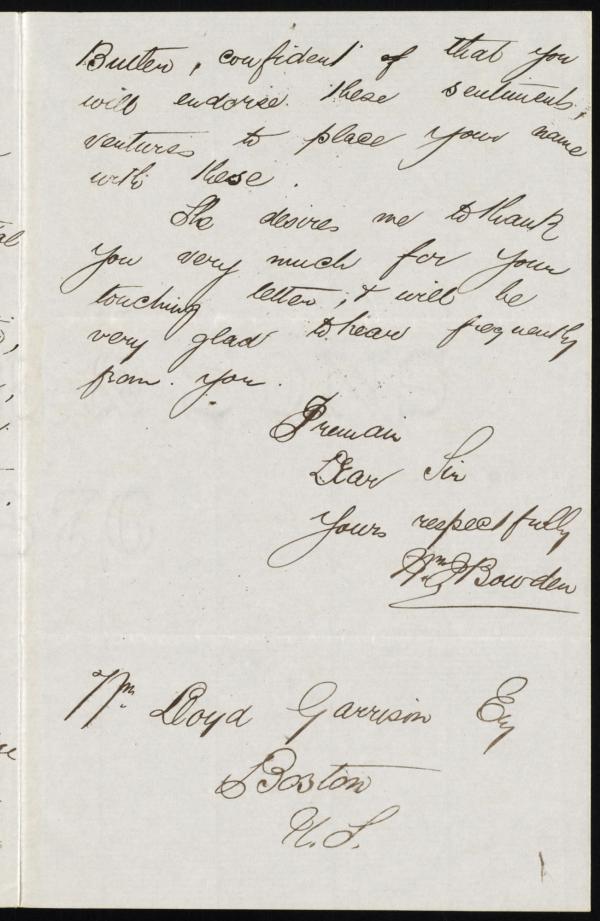 Butler, confident of that you
will endorse these sentiments,
ventures to place your name
with these.
She desires me to thank
you very much for your
touching letter; & will be
very glad to hear frequently
from you.
I remain
Dear Sir
Yours respectfully
Wm J Bowden
Wm. Lloyd Garrison Esq
Boston
U.S.